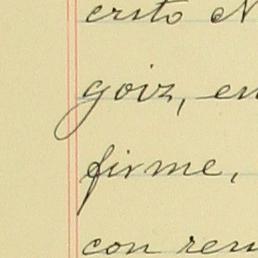 crito N
goiz, en
firme,
con ren